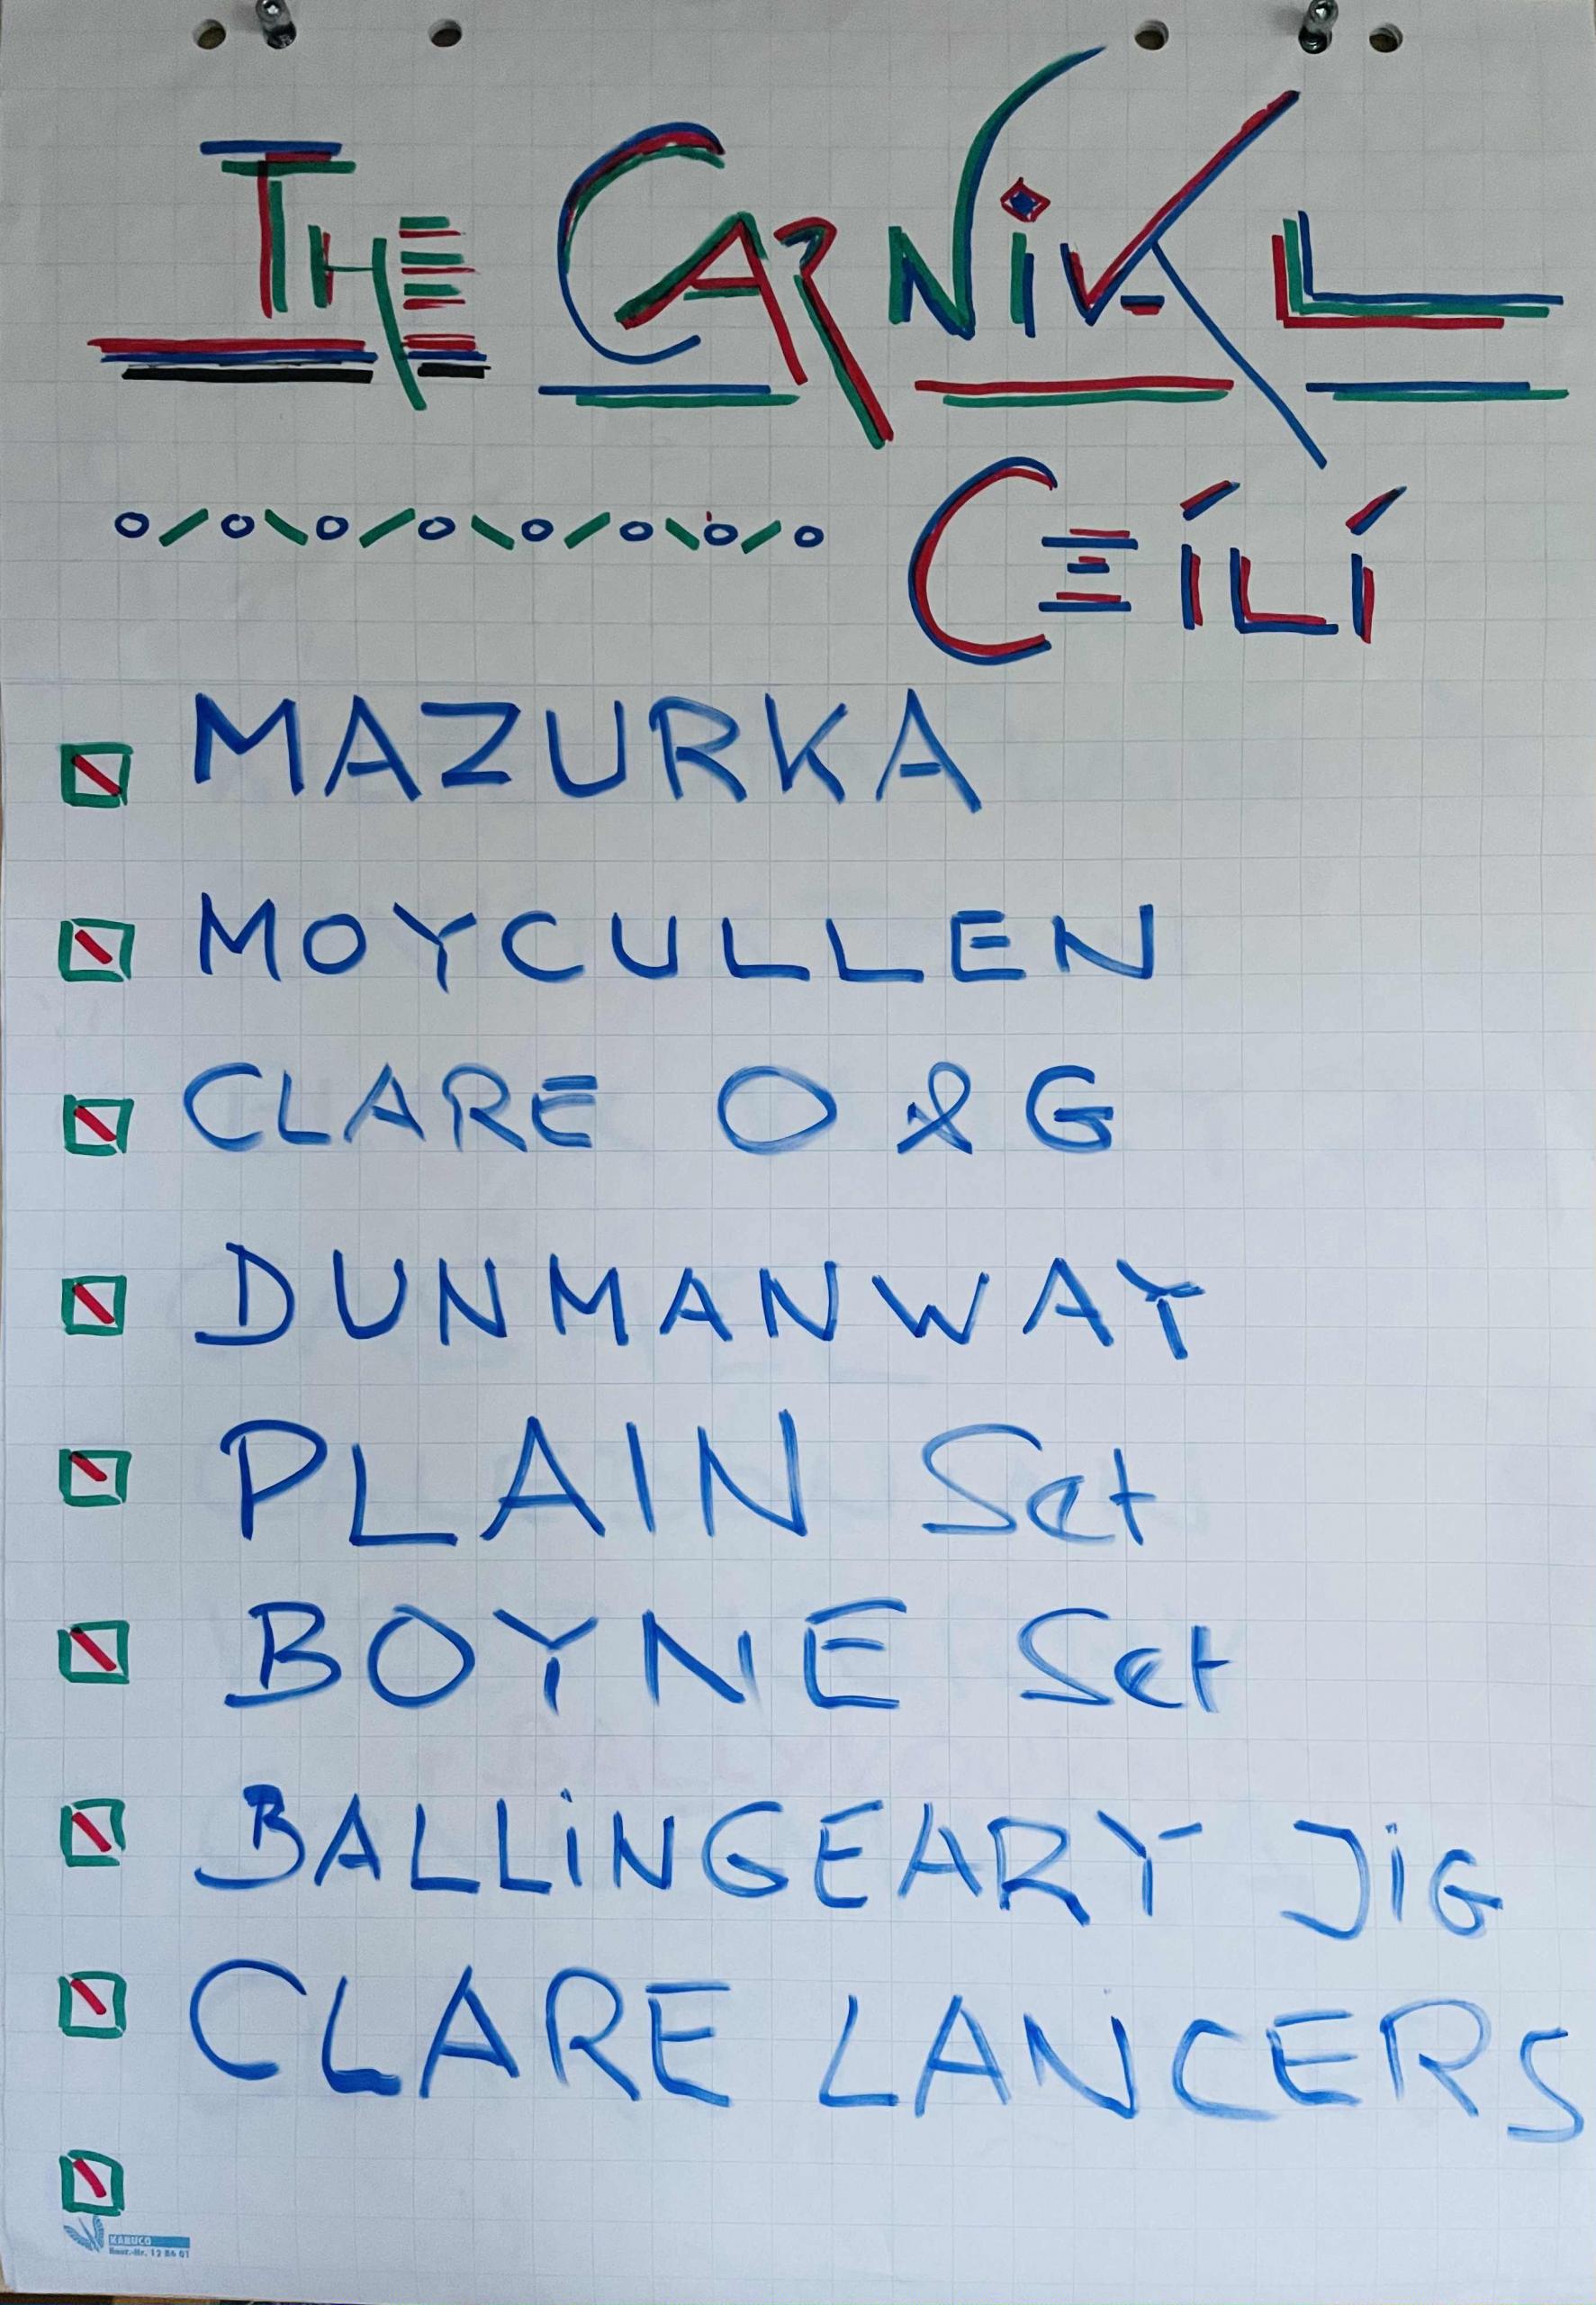 THE CARNiVAL
CEÍLÍ
MAZURKA
MOYCULLEN
CLARE O & G
DUNMANWAY
PLAIN Set
BOYNE Set
BALLiNGEARY JiG
CLARE LANCERS
KABUCO
Best.-Nr. 12 86 01